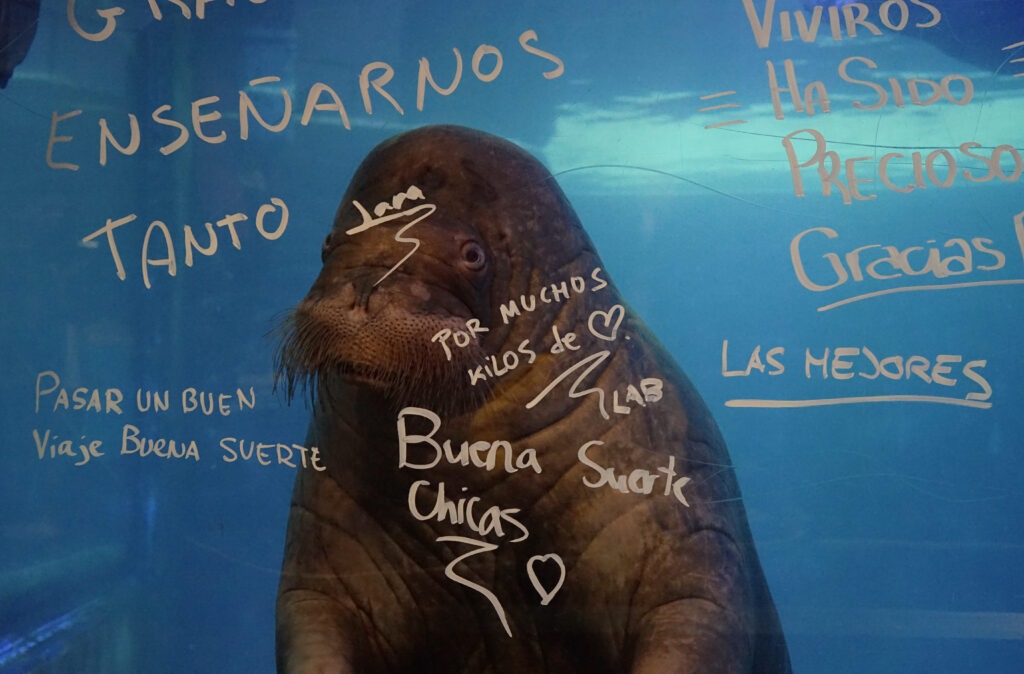 ENSEÑARNOS
TANTO
PASAR UN BUEN
Viaje BUENA SUERTE
Jara
POR MUCHOS
KILOS de ♡.
LAB
Buena Suerte
Chicas
♡
VIVIROS
HA SIDO
PRECIOSO
Gracias
LAS MEJORES